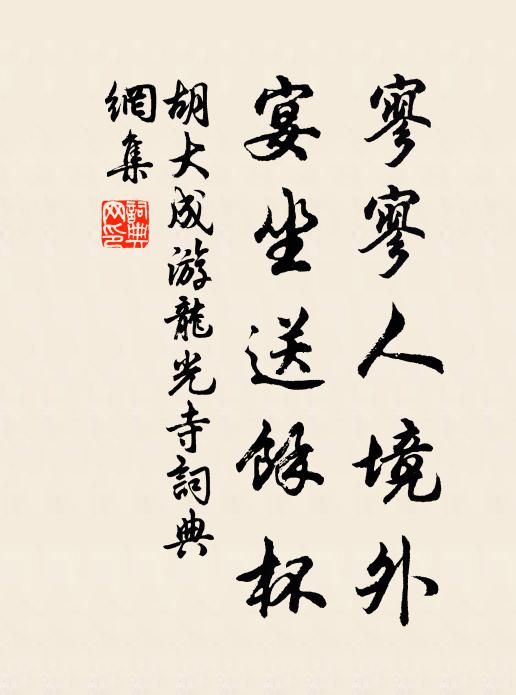 寥寥人境外
宴坐送餘杯
胡大成游龍光寺詞典
網集
詞典
网印